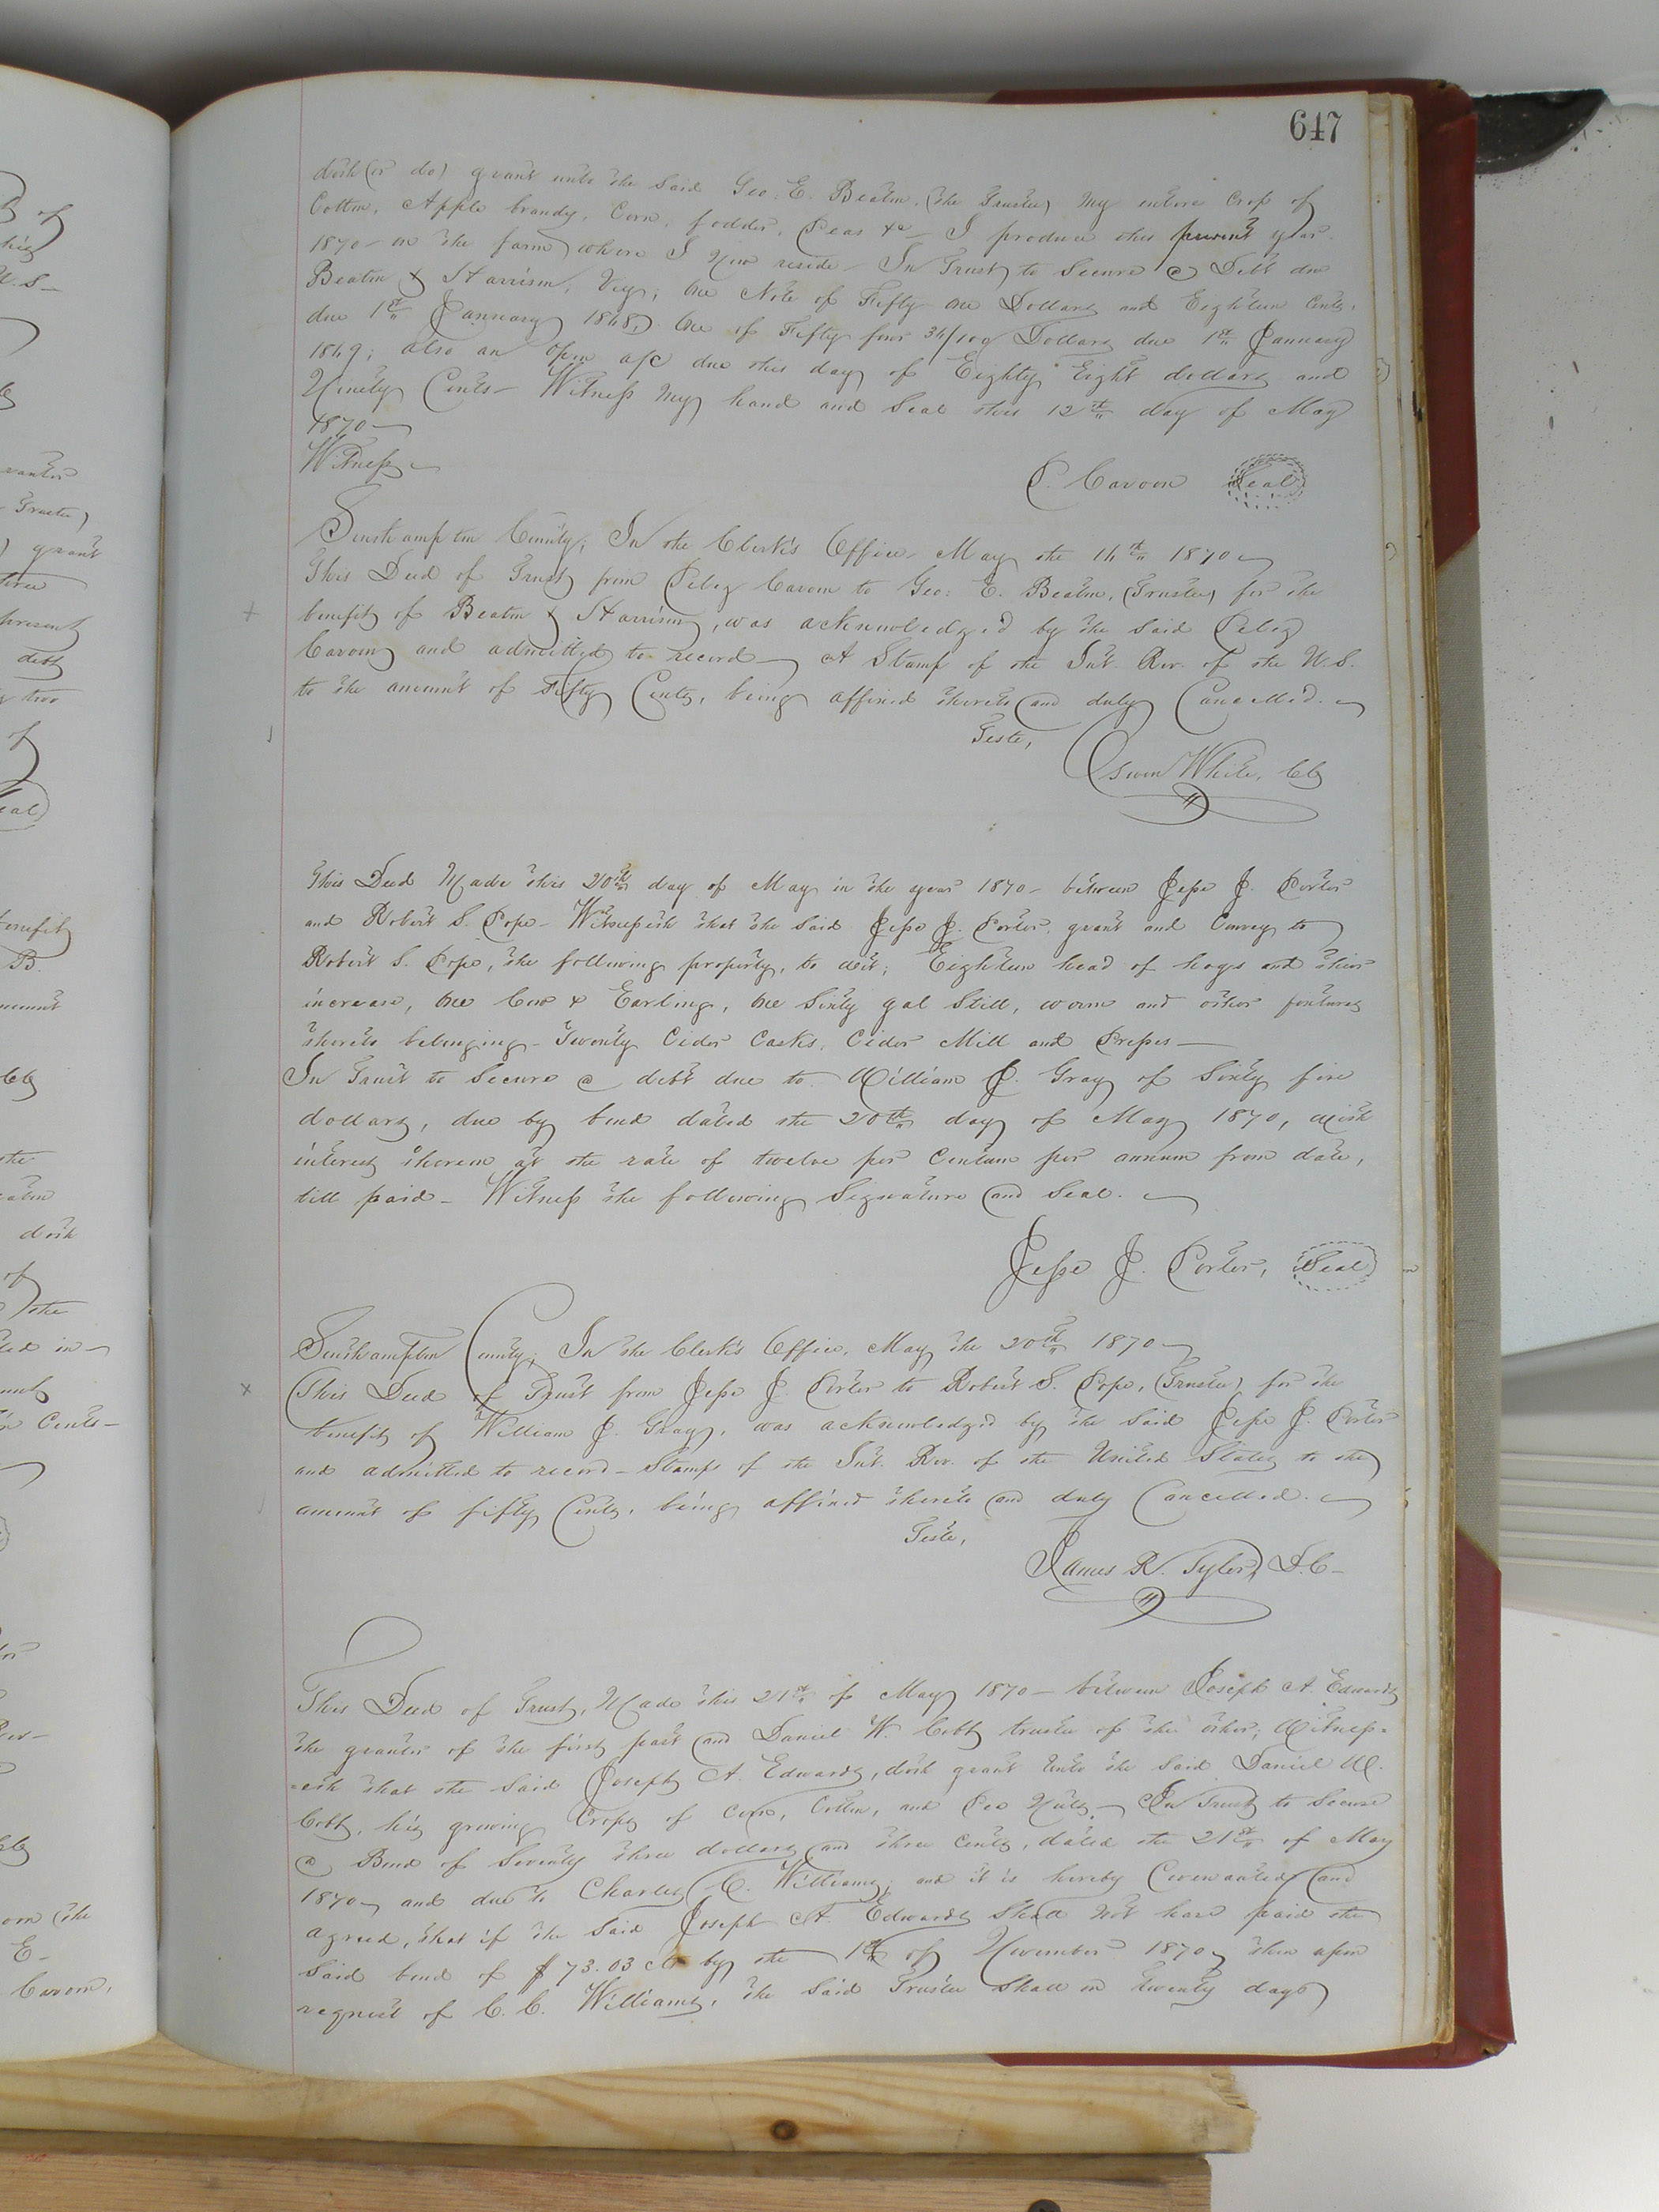 647
doth (or do) grant unto the said Geo: E. Beaton, (the Trustee) My entire Crop of
Cotton, Apple brandy, Corn, fodder, Peas &c — I produce this present year
1870 — on the farm where I now reside — In Trust to Secure a Debt due
Beaton & Harrison, Viz; One Note of Fifty One Dollars and Eighteen Cents,
due 1st January 1868, One of Fifty four 34/100 Dollars due 1st January
1869; also an open a/c due this day of Eighty Eight dollars and
Ninety Cents — Witness My hand and Seal this 12th day of May
1870 —
Witness —
P. Cavorn Seal
Southampton County; In the Clerk's Office, May the 14th 1870 —
This Deed of Trust from Peleg Cavorn to Geo: E. Beaton, (Trustee) for the
benefit of Beaton & Harrison, was acknowledged by the said Peleg
Cavorn and admitted to record — A Stamp of the Int. Rev. of the U.S.
to the amount of Fifty Cents, being affixed thereto and duly Cancelled. —
Teste,
White, Clk
This Deed Made this 20th day of May in the year 1870 — between Jesse J. Porter
and Robert S. Pope — Witnesseth that the said Jesse J. Porter, grant and Convey to
Robert S. Pope, the following property, to wit; Eighteen head of hogs and their
increase, One Cow & Earling, One Sixty gal Still, worm and other fixtures
thereto belonging — Twenty Cider Casks, Cider Mill and Presses —
In Trust to Secure a debt due to William J. Gray of Sixty five
dollars, due by bond dated the 20th day of May 1870, with
interest thereon at the rate of twelve per Centum per annum from date,
till paid — Witness the following Signature and Seal. —
Jesse J. Porter, Seal
Southampton County; In the Clerk's Office, May the 20th 1870 —
This Deed of Trust from Jesse J. Porter to Robert S. Pope, (Trustee) for the
benefit of William J. Gray, was acknowledged by the said Jesse J. Porter
and admitted to record — Stamps of the Int. Rev. of the United States to the
amount of fifty Cents, being affixed thereto and duly Cancelled. —
Teste,
James R. Tyler, D.C —
This Deed of Trust, Made this 21st of May 1870 — between Joseph A. Edwards
the grantor of the first part and Daniel W. Cobb trustee of the other; Witness=
=eth that the said Joseph A. Edwards, doth grant Unto the said Daniel W.
Cobb, his growing Crops of Corn, Cotton, and Pea Nuts — In Trust to Secure
a Bond of Seventy three dollars and three Cents, dated the 21st of May
1870 — and due to Charles C. Williams; and it is hereby Covenanted and
agreed, that if the said Joseph A. Edwards shall not have paid the
said bond of $73.03 cts by the 1st of November 1870, then upon
request of C. C. Williams, the said Trustee shall in twenty days